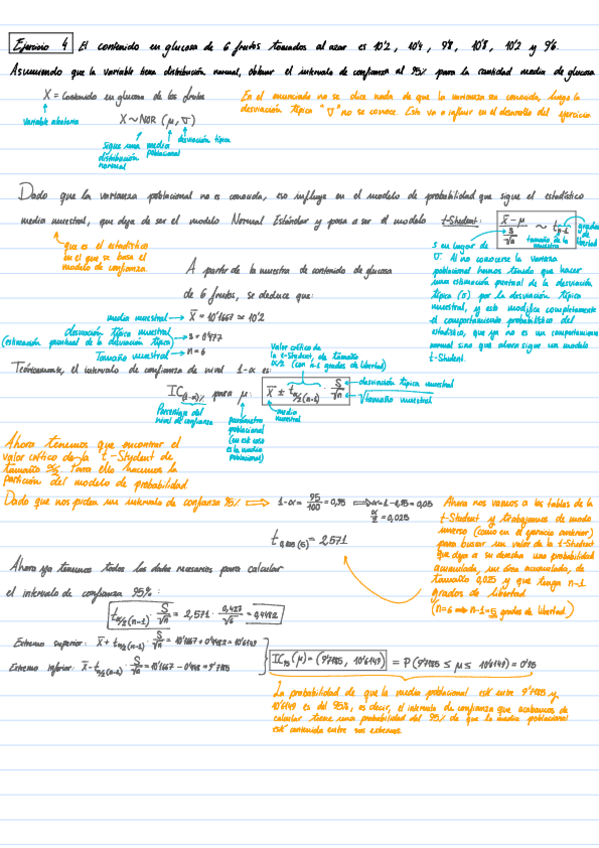 Ejercicio 4 El contenido en glucosa de 6 frutos tomados al azar es 10'2, 10'4, 9'8, 10'8, 10'2 y 9'6.
Asumiendo que la variable tiene distribución normal, obtener el intervalo de confianza al 95% para la cantidad media de glucosa
X = Contenido en glucosa de los frutos
variable aleatoria
X ~ NOR (μ, σ)
sigue una distribución normal
media poblacional
desviación típica
En el enunciado no se dice nada de que la varianza sea conocida, luego la
desviación típica "σ" no se conoce. Esto va a influir en el desarrollo del ejercicio
Dado que la varianza poblacional no es conocida, eso influye en el modelo de probabilidad que sigue el estadístico
media muestral, que deja de ser el modelo Normal Estándar y pasa a ser el modelo t-Student:
x̄ - μ / s/√n ~ t n-1
grados de libertad
tamaño de la muestra
que es el estadístico
en el que se basa el
modelo de confianza.
s en lugar de
σ. Al no conocerse la varianza
poblacional hemos tenido que hacer
una estimación puntual de la desviación
típica (σ) por la desviación típica
muestral, y esto modifica completamente
el comportamiento probabilístico del
estadístico, que ya no es un comportamiento
normal sino que ahora sigue un modelo
t-Student.
A partir de la muestra de contenido de glucosa
de 6 frutos, se deduce que:
media muestral → x̄ = 10'1667 ≃ 10'2
desviación típica muestral
(estimación puntual de la desviación típica) → s =
Tamaño muestral → n = 6
Valor crítico de
la t-Student, de tamaño
α/2 (con n-1 grados de libertad)
Teóricamente, el intervalo de confianza de nivel 1-α es:
IC(1-α)% para μ: x̄ ± t α/2 (n-1) · s/√n
desviación típica muestral
√tamaño muestral
Porcentaje del
nivel de confianza
parámetro
poblacional
(en este caso
es la media
poblacional)
media
muestral
Ahora tenemos que encontrar el
valor crítico de la t-Student de
tamaño α/2. Para ello hacemos la
partición del modelo de probabilidad
Dado que nos piden un intervalo de confianza 95% ⇒ 1-α = 95/100 = 0,95 ⇒ α = 1-0,95 = 0,05
α/2 = 0,025
t 0,025 (5) = 2,571
Ahora nos vamos a las tablas de la
t-Student y trabajamos de modo
inverso (como en el ejercicio anterior)
para buscar un valor de la t-Student
que deja a su derecha una probabilidad
acumulada, un área acumulada, de
tamaño 0,025 y que tenga n-1
grados de libertad
(n=6 ⇒ n-1=5 grados de libertad)
Ahora ya tenemos todos los datos necesarios para calcular
el intervalo de confianza 95%:
t α/2 (n-1) · s/√n = 2,571 · 0,427/√6 = 0,4482
Extremo superior: x̄ + t α/2 (n-1) · s/√n = 10'1667 + 0'4482 = 10'6149
Extremo inferior: x̄ - t α/2 (n-1) · s/√n = 10'1667 - 0'448 = 9'7185
IC95 (μ) = (9'7185, 10'6149) = P (9'7185 ≤ μ ≤ 10'6149) = 0'95
La probabilidad de que la media poblacional esté entre 9'7185 y
10'6149 es del 95%, es decir, el intervalo de confianza que acabamos de
calcular tiene una probabilidad del 95% de que la media poblacional
esté contenida entre sus extremos.